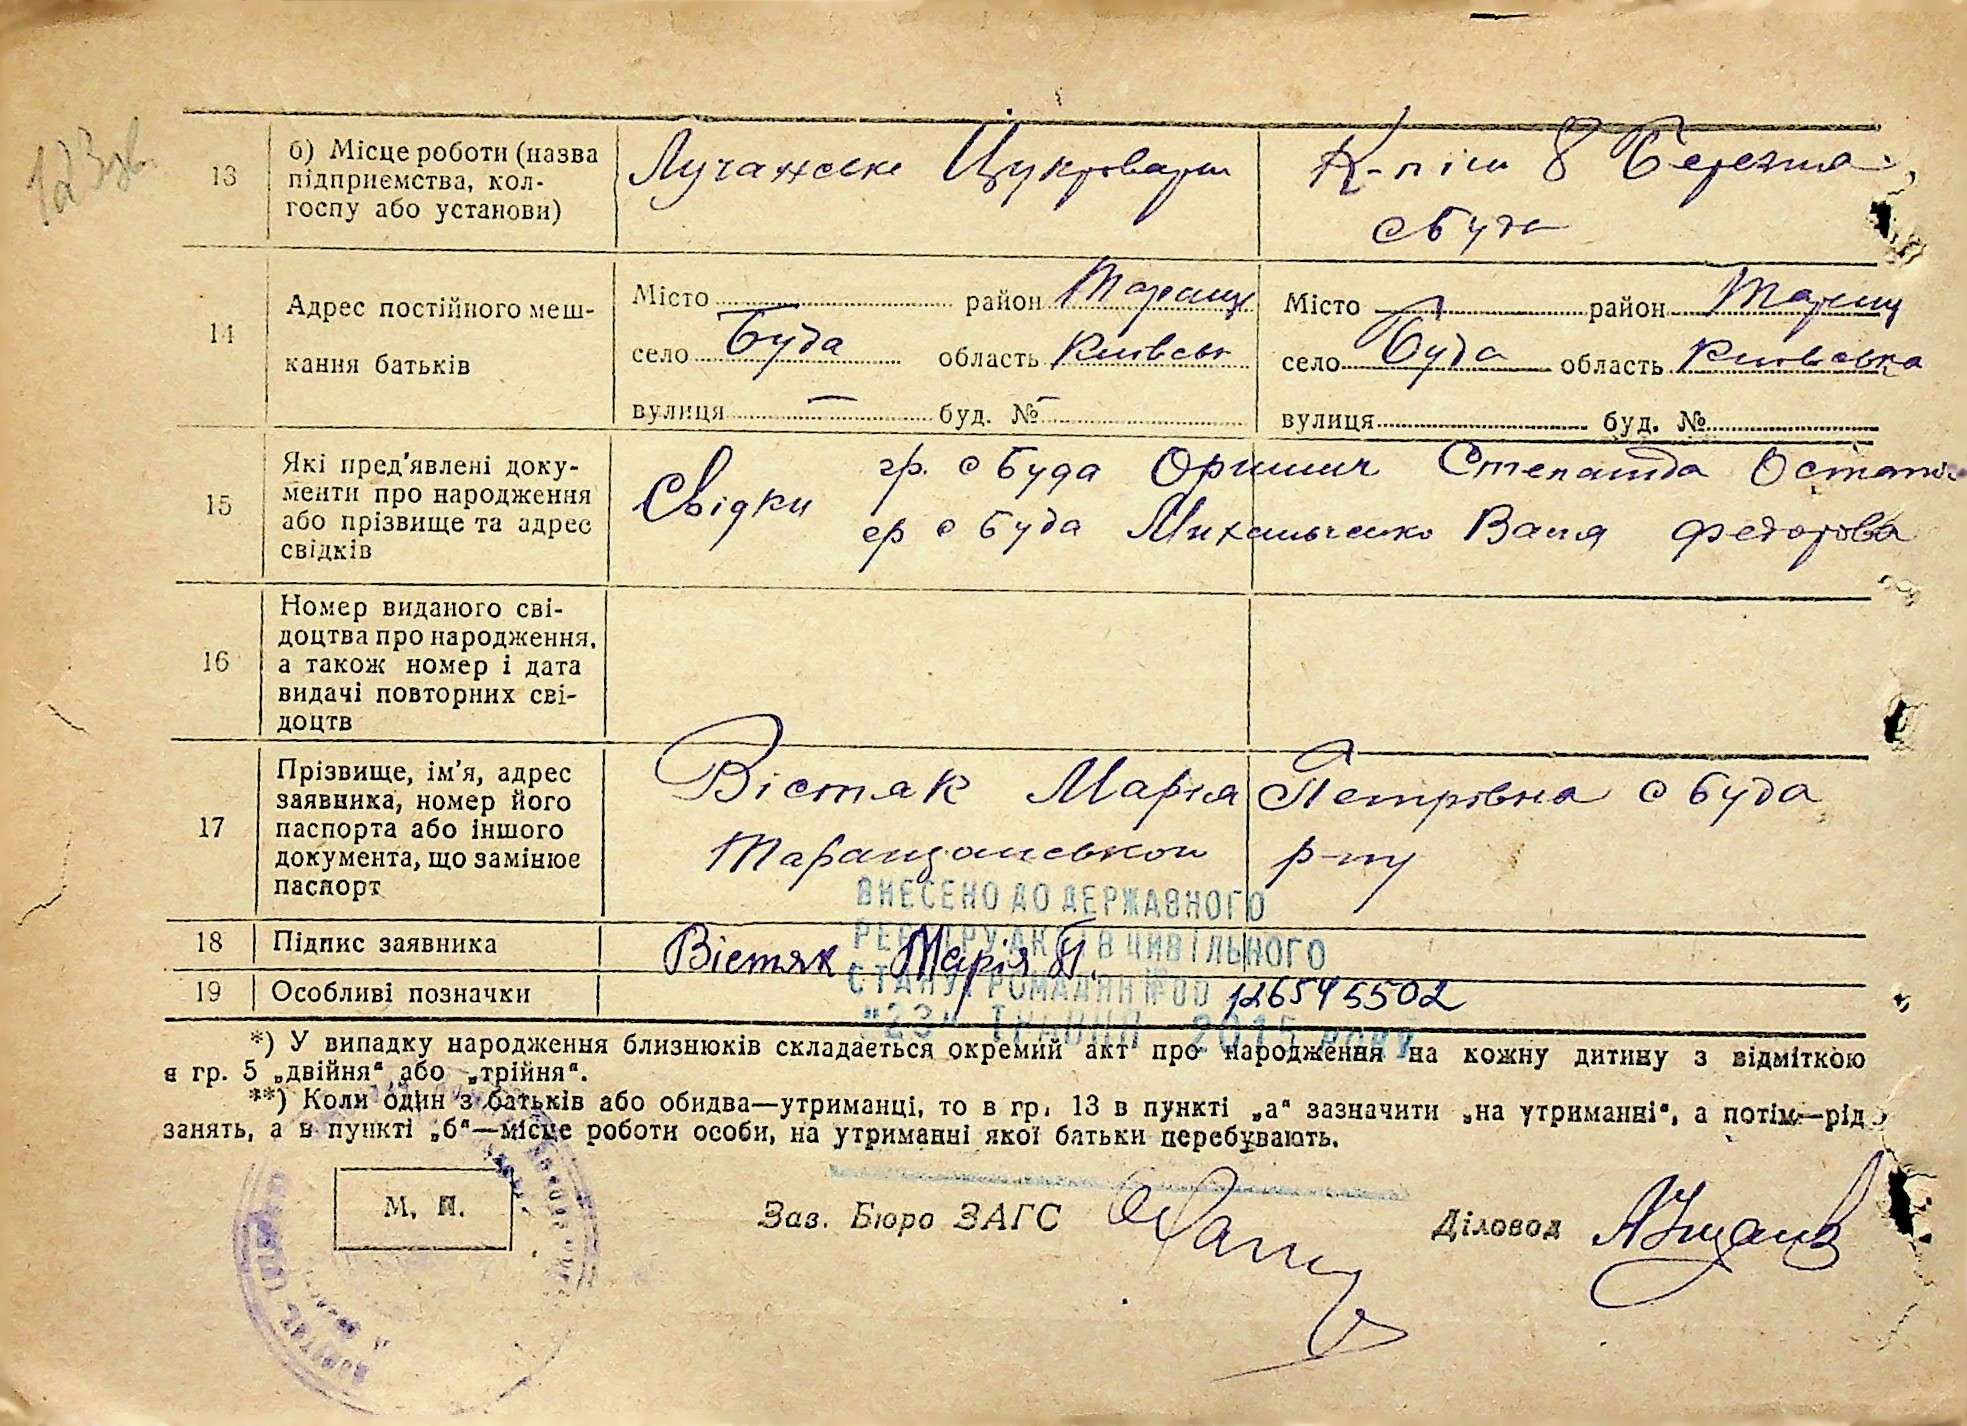 13 б) Місце роботи (назва підприємства, кол-
госпу або установи)
Лучанське Цукроварн
К-госп 8 Березня
с Буда
14 Адрес постійного меш-
кання батьків
Місто — район Таращ
село Буда область Київськ
вулиця — буд. № —
Місто — район Таращ
село Буда область Київська
вулиця буд. №
15 Які пред'явлені доку-
менти про народження
або прізвище та адрес
свідків
Свідки гр. с Буда Степанида
гр с Буда Михальченко Ваня Федорова
16 Номер виданого сві-
доцтва про народження,
а також номер і дата
видачі повторних сві-
доцтв
17 Прізвище, ім'я, адрес
заявника, номер його
паспорта або іншого
документа, що замінює
паспорт
Вістяк Марія Петрівна с Буда
Таращанського р-ну
ВНЕСЕНО ДО ДЕРЖАВНОГО
РЕЄСТРУ АКТІВ ЦИВІЛЬНОГО
СТАНУ ГРОМАДЯН №00126545502
"23" ТРАВНЯ 2015 року
18 Підпис заявника
Вістяк Марія П.
19 Особливі позначки
*) У випадку народження близнюків складається окремий акт про народження на кожну дитину з відміткою
в гр. 5 „двійня“ або „трійня“.
**) Коли один з батьків або обидва—утриманці, то в гр. 13 в пункті „а“ зазначити „на утриманні“, а потім—рід
занять, а в пункті „б“—місце роботи особи, на утриманні якої батьки перебувають.
М. П.
Зав. Бюро ЗАГС
Діловод